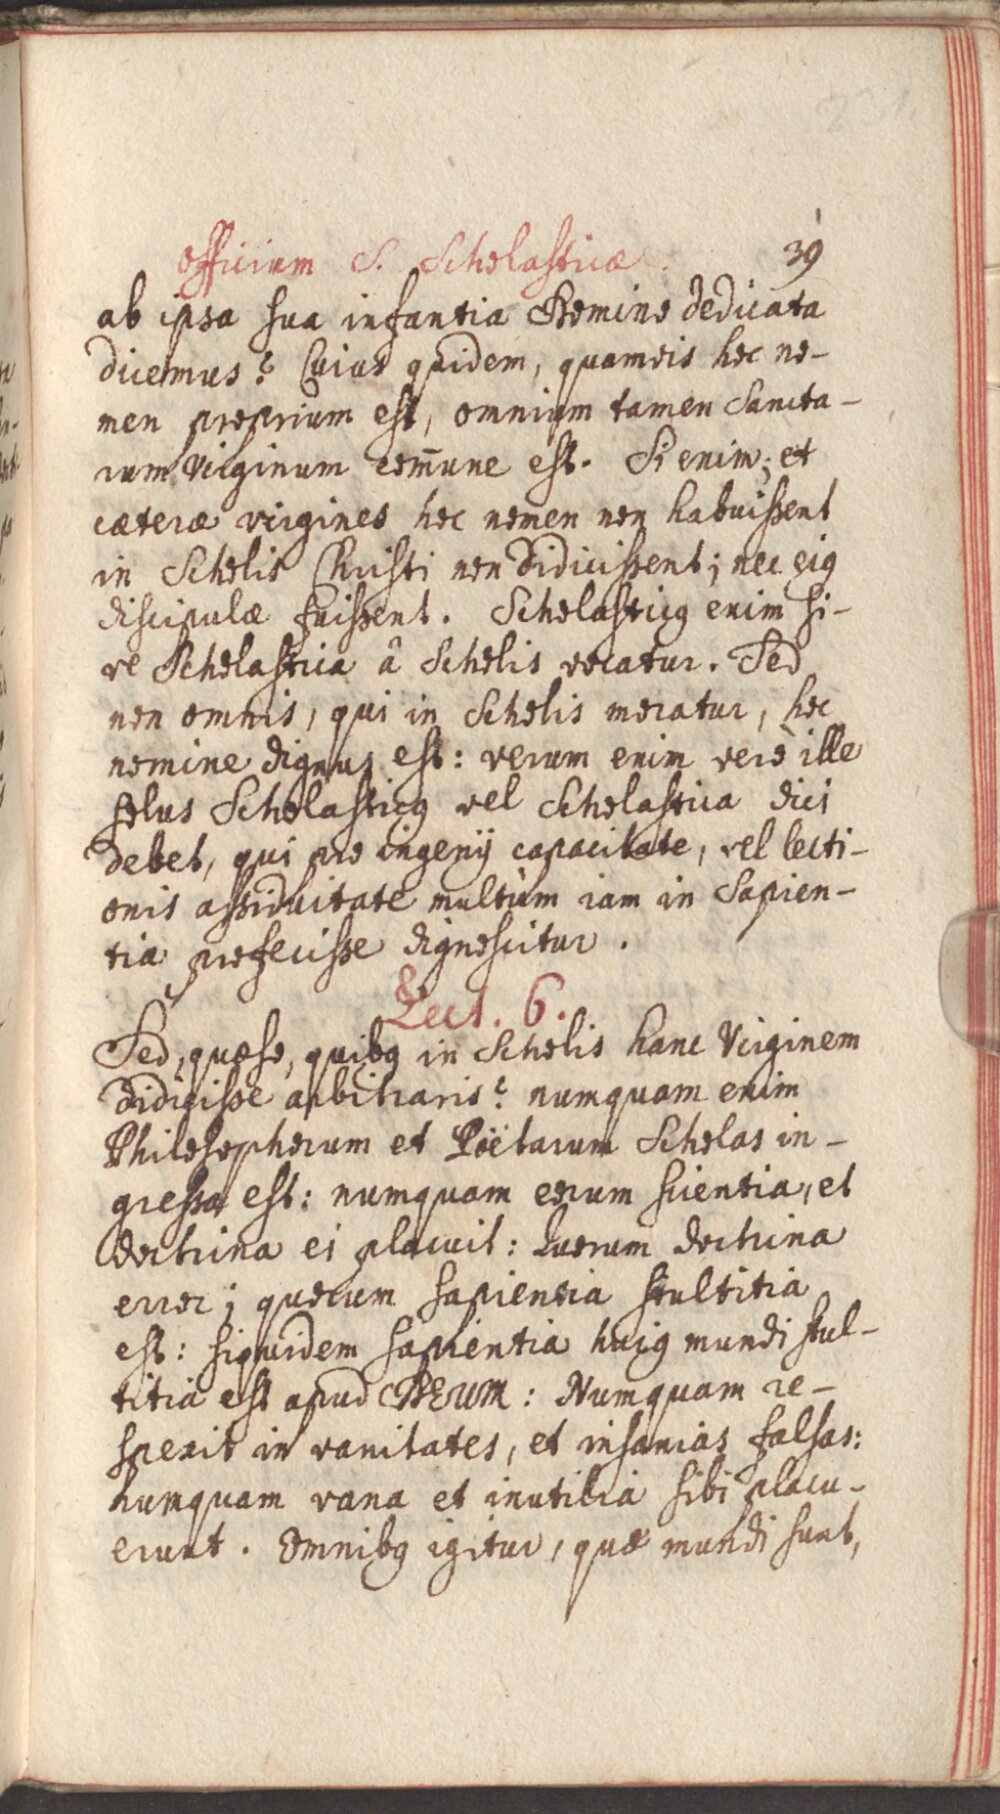 Officium S. Scholasticæ. 39
ab ipsa sua infantia Domino dedicata
dicemus? Cuius quidem, quamvis hoc no-
men proprium est, omnium tamen Sancta-
rum Virginum com̄une est. Si enim; et
cæteræ virgines hoc nomen non habuißent
in Scholis Christi non didicißent; nec eiꝰ
discipulæ fuißent. Scholasticꝰ enim si-
ve Scholastica â Scholis vocatur. Sed
non omnis, qui in Scholis moratur, hoc
nomine dignus est: verum enim verò ille
solus Scholasticꝰ vel Scholastica dici
debet, qui pro ingenij capacitate, vel lecti-
onis aßiduitate multùm iam in Sapien-
tia profeciße dignoscitur.
Lect. 6.
Sed, quæso, quibꝰ in Scholis hanc Virginem
didiciße arbitraris? numquam enim
Philosophorum et Poëtarum Scholas in-
greßa est: numquam eorum scientia, et
doctrina ei placuit: Quorum doctrina
error; quorum sapientia stultitia
est: siquidem sapientia huiꝰ mundi stul-
titia est apud DEUM: Numquam re-
spexit in vanitates, et insanias falsas:
numquam vana et inutilia sibi placu-
erunt. Omnibꝰ igitur, quæ mundi sunt,